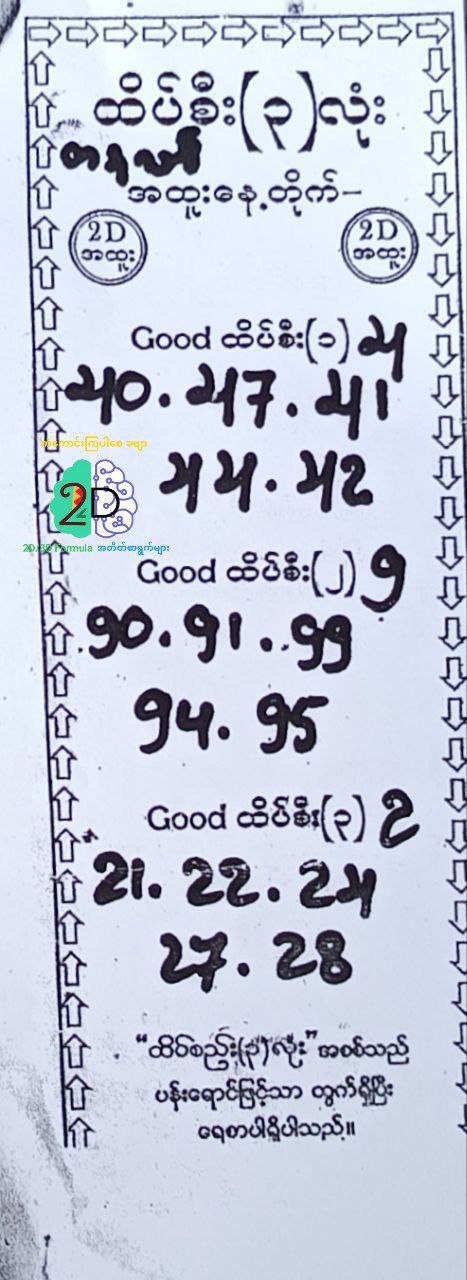 ထိပ်စီး(၃)လုံး
တနင်္လာ
အထူးနေ့တိုက်-
2D
အထူး
2D
အထူး
Good ထိပ်စီး(၁) 4
40. 47. 41
44. 42
အကောင်းကြပါစေ ခဗျာ
2D
2D/3D Formula အတိတ်စာရွက်များ
Good ထိပ်စီး(၂) 9
90. 91. 99
94. 95
Good ထိပ်စီး(၃) 2
21. 22. 24
27. 28
"ထိပ်စည်း(၃)လုံး" အစစ်သည်
ပန်းရောင်ဖြင့်သာ ထွက်ရှိပြီး
ရေစာပါရှိပါသည်။